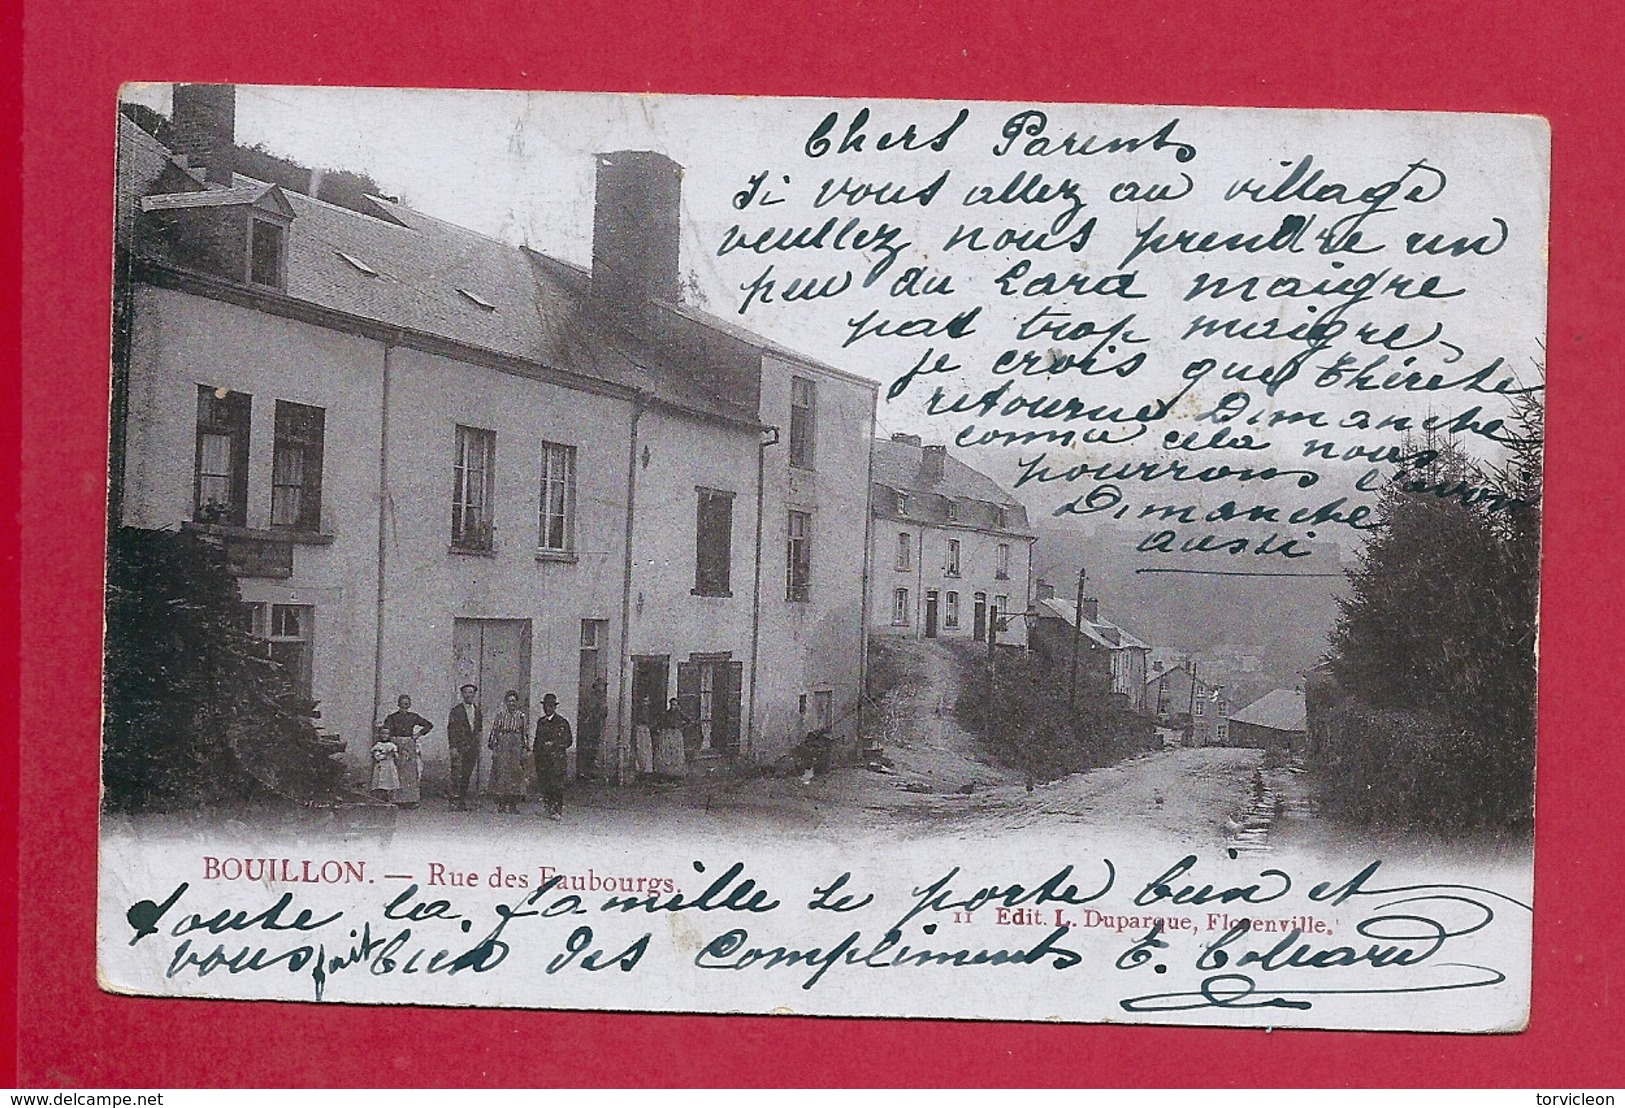 Chers Parents
Si vous allez au village
veullez nous prendre un
peu du Lard maigre
pas trop maigre,
je crois que Thérèse
retourne Dimanche
comme cela nous
pourrons l'avoir
Dimanche
aussi
BOUILLON. — Rue des Faubourgs.
11 Edit. L. Duparque, Florenville.
toute la famille se porte bien et
vous fait bien des Compliments E.
www.delcampe.net
torvicleon